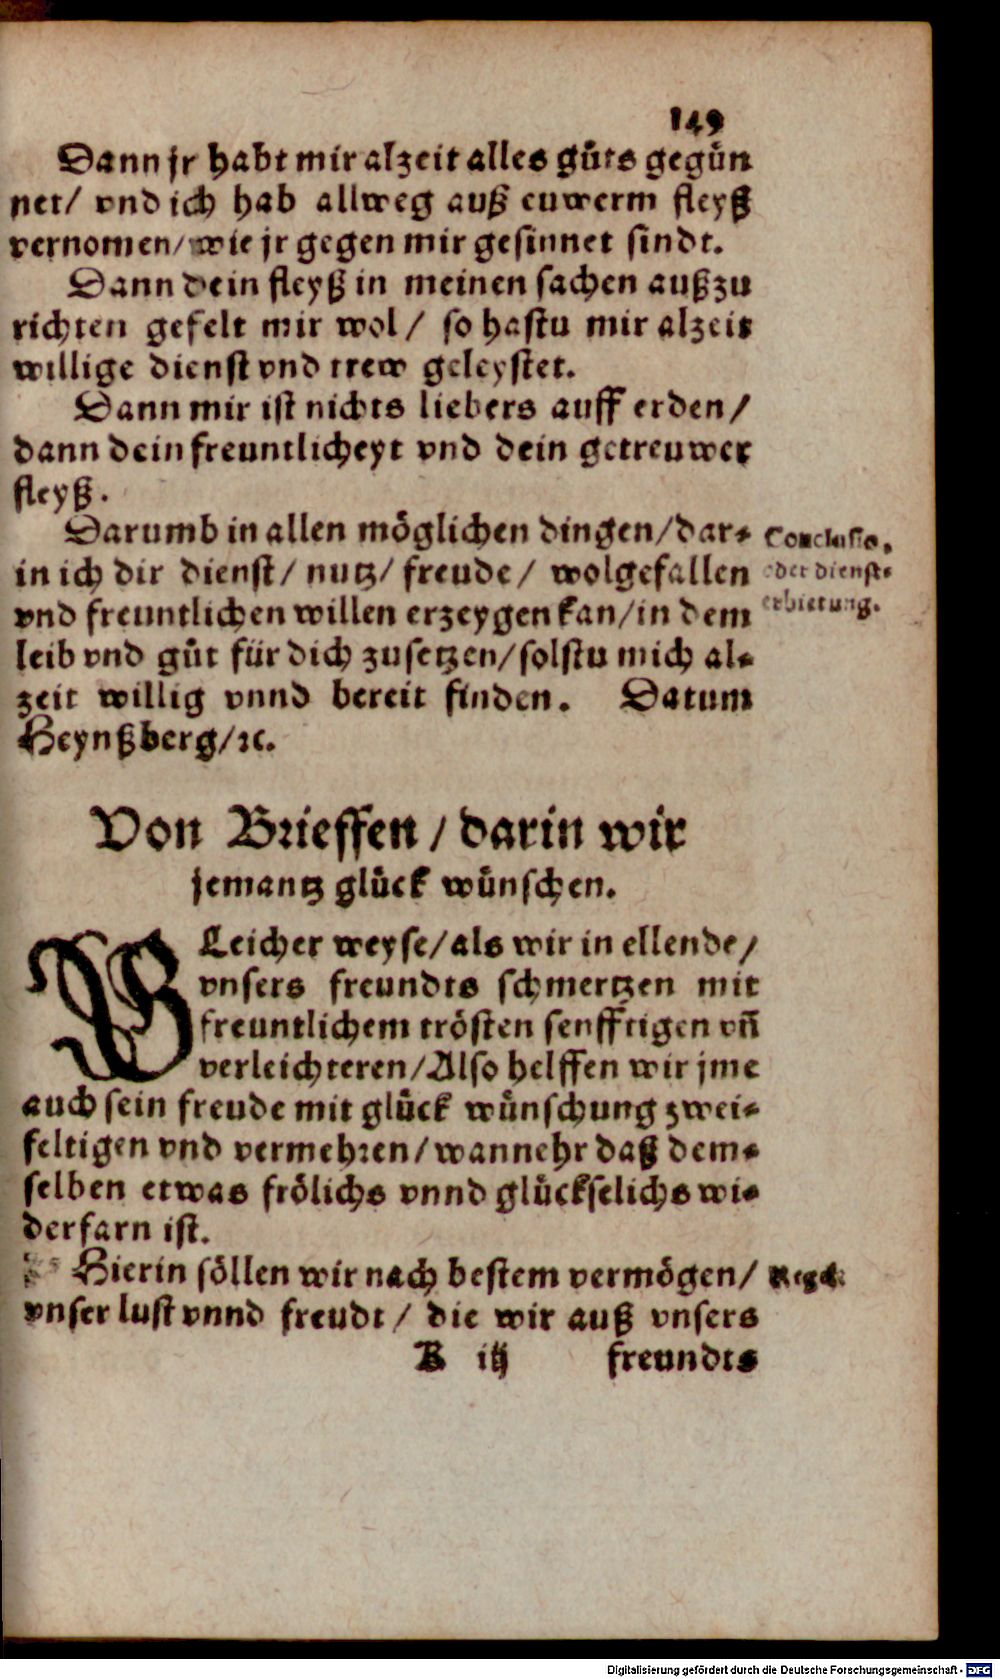 149
Dann jr habt mir alzeit alles gůts gegůn
net/ vnd ich hab allweg auß euwerm fleyß
vernomen/ wie jr gegen mir gesinnet sindt.
Dann dein fleyß in meinen sachen außzu
richten gefelt mir wol/ so hastu mir alzeit
willige dienst vnd trew geleystet.
Dann mir ist nichts liebers auff erden/
dann dein freuntlicheyt vnd dein getreuwer
fleyß.
Darumb in allen möglichen dingen/ dar-
in ich dir dienst/ nutz/ freude/ wolgefallen
vnd freuntlichen willen erzeygen kan/ in dem
leib vnd gůt für dich zusetzen/ solstu mich al-
zeit willig vnnd bereit finden. Datum
Heynßberg/ ꝛc.
Conclusio,
oder dienst-
erbietung.
Von Brieffen/ darin wir
jemantz glück wünschen.
GLeicher weyse/ als wir in ellende/
vnsers freundts schmertzen mit
freuntlichem trösten senfftigen vñ
verleichteren/ Also helffen wir jme
auch sein freude mit glück wünschung zwei-
feltigen vnd vermehren/ wannehr daß dem-
selben etwas frölichs vnnd glückselichs wi-
derfarn ist.
Hierin söllen wir nach bestem vermögen/
vnser lust vnnd freudt/ die wir auß vnsers
Regel.
K iij freundts
Digitalisierung gefördert durch die Deutsche Forschungsgemeinschaft - DFG